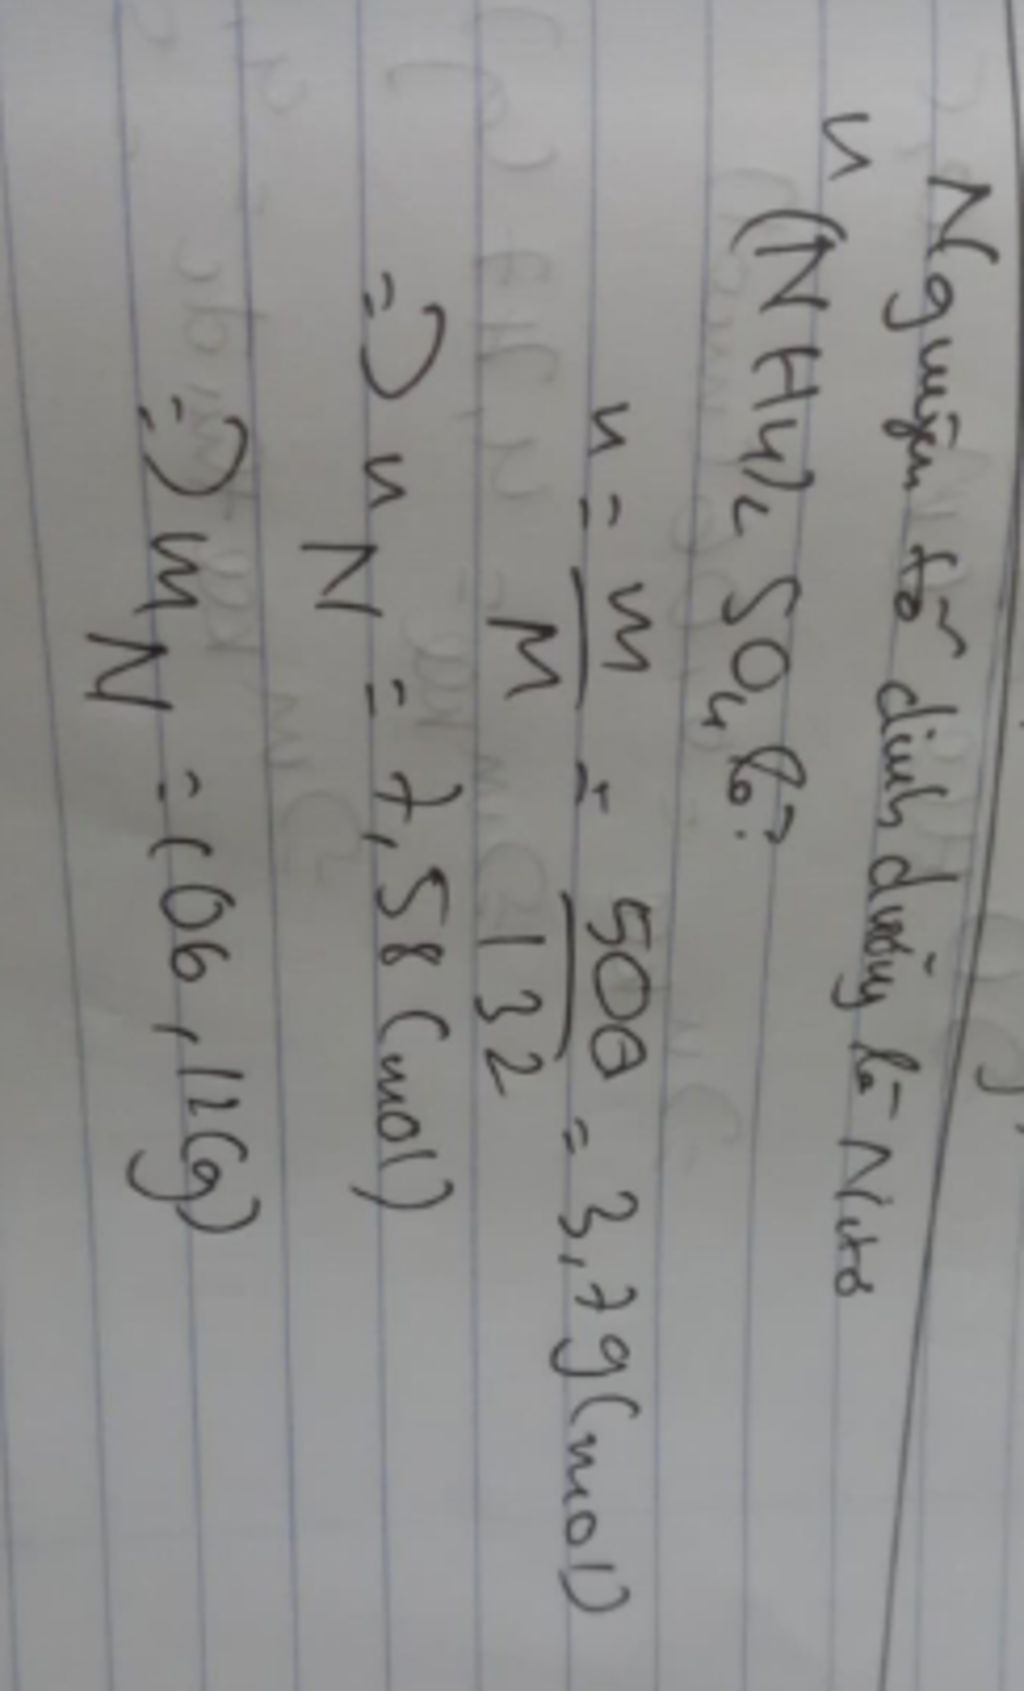 Nguyên tố dinh dưỡng là Nitơ
n (NH4)2 SO4 là:
n = m/M = 500/132 = 3,79 (mol)
=> n N = 7,58 (mol)
=> m N = 106,12 (g)